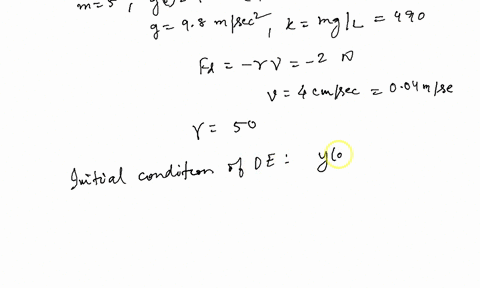 m=5,
g = 9.8 m/sec², k = mg/L = 490
Fd = -γv = -2 N
v = 4 cm/sec = 0.04 m/se
γ = 50
Initial condition of DE: y(0